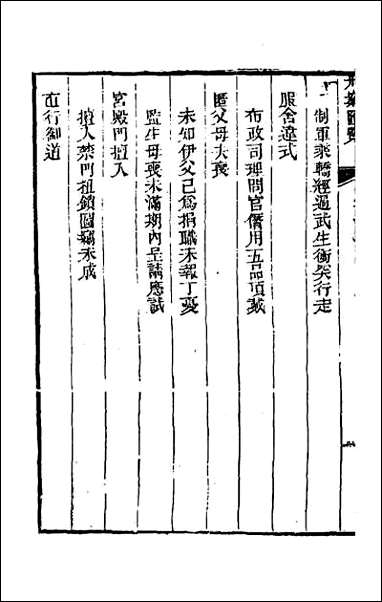 刑案匯覽
制軍乘轎經過武生衝突行走
服舍違式
布政司理問官僭用五品頂戴
匿父母夫喪
未知伊父已為捐職未報丁憂
監生母喪未滿期內呈請應試
宮殿門擅入
擅入禁門扭鎖圖竊未成
直行御道